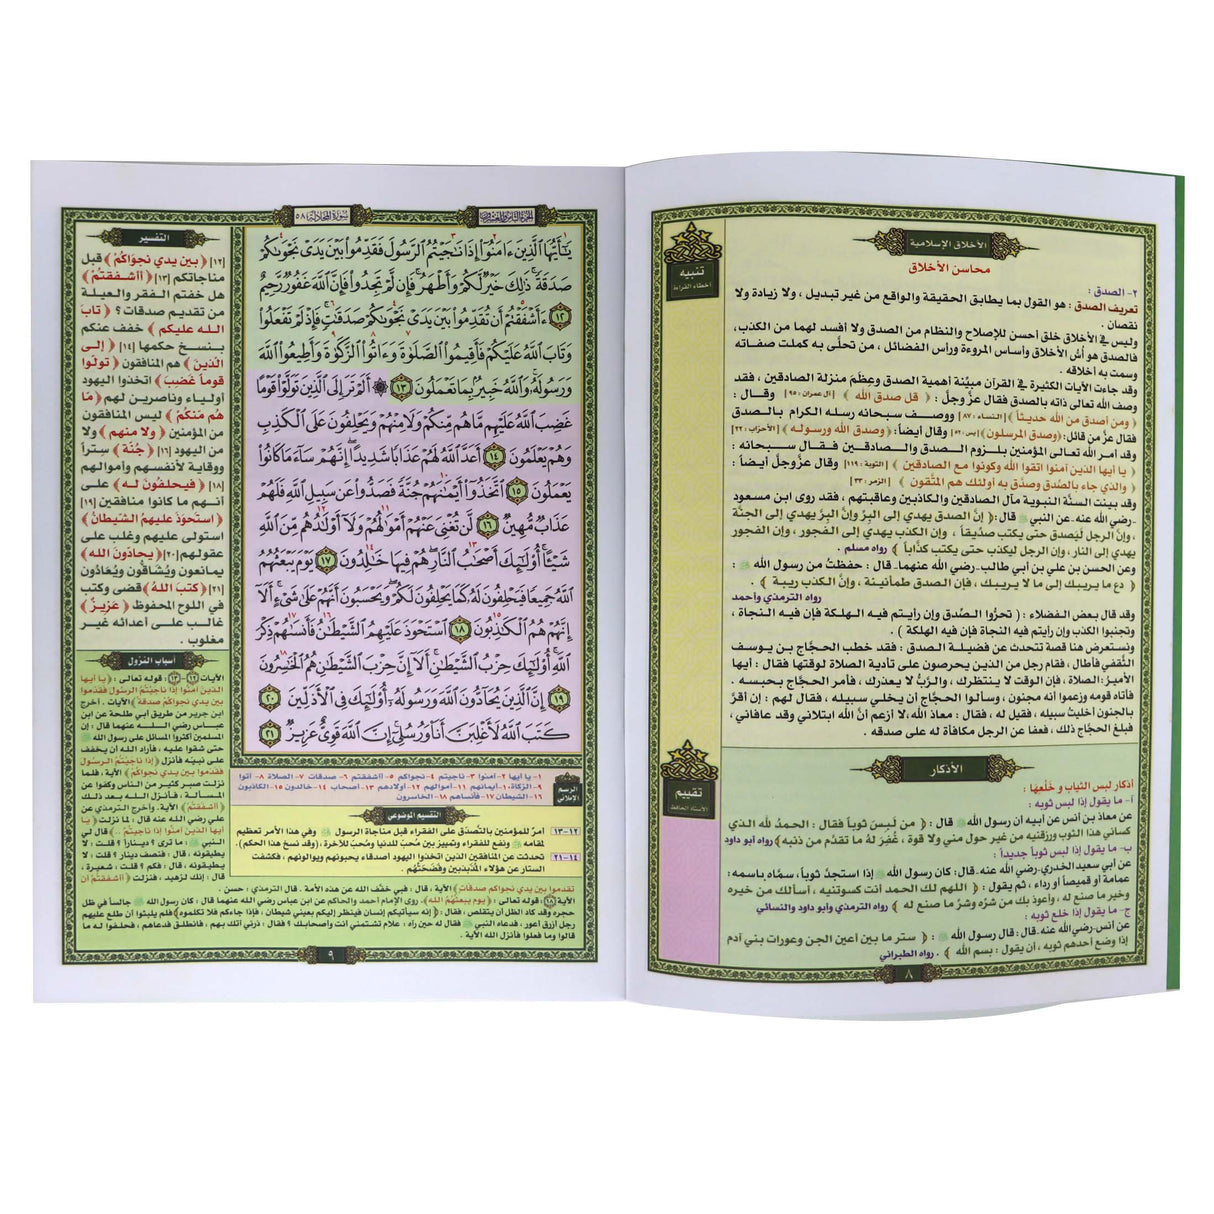 الأخلاق الإسلامية
محاسن الأخلاق
٢- الصدق :
تعريف الصدق : هو القول بما يطابق الحقيقة والواقع من غير تبديل ، ولا زيادة ولا
نقصان .
وليس في الأخلاق خلق أحسن للإصلاح والنظام من الصدق ولا أفسد لهما من الكذب،
فالصدق هو أسُّ الأخلاق وأساس المروءة ورأس الفضائل ، من تحلَّى به كملت صفاته
وسمت به أخلاقه .
وقد جاءت الآيات الكثيرة في القرآن مبيِّنة أهمية الصدق وعِظَمَ منزلة الصادقين ، فقد
وصف الله تعالى ذاته بالصدق فقال عزَّ وجلَّ : ﴿ قل صدق الله ﴾ [آل عمران : ٩٥] وقال :
﴿ ومن أصدق من الله حديثاً ﴾ [النساء : ٨٧] ووصف سبحانه رسله الكرام بالصدق
فقال عزَّ من قائل: ﴿وصدق المرسلون﴾ [يس: ٥٢] وقال أيضاً: ﴿وصدق الله ورسوله ﴾ [الأحزاب : ٢٢]
وقد امر الله تعالى المؤمنين بلزوم الصدق والصادقين فقال سبحانه :
﴿ يا أيها الذين آمنوا اتقوا الله وكونوا مع الصادقين ﴾ [التوبة : ١١٩] وقال عزَّ وجلَّ أيضاً :
﴿ والذي جاء بالصِّدق وصدَّق به أولئك هم المتَّقون ﴾ [الزمر : ٣٣]
وقد بينت السنَّة النبوية مآل الصادقين والكاذبين وعاقبتهم ، فقد روى ابن مسعود
-رضي الله عنه- عن النبي ﷺ قال: ﴿ إنَّ الصدق يهدي إلى البِرِّ وإنَّ البِرَّ يهدي إلى الجنَّة
، وإنَّ الرجل ليَصدق حتى يكتب صدِّيقاً ، وإن الكذب يهدي إلى الفجور ، وإن الفجور
يهدي إلى النار ، وإن الرجل ليكذب حتى يكتب كذَّاباً ﴾ رواه مسلم .
وعن الحسن بن علي بن أبي طالب- رضي الله عنهما- قال : حفظتُ من رسول الله ﷺ :
﴿ دع ما يريبك إلى ما لا يريبك ، فإن الصدق طمأنينة ، وإنَّ الكذب ريبة ﴾ .
رواه الترمذي وأحمد
وقد قال بعض الفضلاء : ( تحرَّوا الصِّدق وإن رأيتم فيه الهلكة فإن فيه النجاة ،
وتجنبوا الكذب وإن رأيتم فيه النجاة فإن فيه الهلكة ) .
ونستعرض هنا قصة تتحدث عن فضيلة الصدق : فقد خطب الحجَّاج بن يوسف
الثَّقفي فأطال ، فقام رجل من الذين يحرصون على تأدية الصلاة لوقتها فقال : أيها
الأمير: الصلاة، فإن الوقت لا ينتظرك ، والرَّبُّ لا يعذرك ، فأمر الحجَّاج بحبسه .
فأتاه قومه وزعموا أنه مجنون ، وسألوا الحجَّاج أن يخلي سبيله ، فقال لهم : إن أقرَّ
بالجنون أخليتُ سبيله ، فقيل له ، فقال : معاذ الله ،لا أزعم أنَّ الله ابتلاني وقد عافاني ،
فبلغ الحجَّاج ذلك ، فعفا عن الرجل مكافأة له على صدقه .
الأذكار
أذكار لبس الثياب و خَلْعِها :
أ- ما يقول إذا لبس ثوبه :
عن معاذ بن أنس عن أبيه أن رسول الله ﷺ قال : ﴿ من لَبسَ ثوباً فقال : الحمدُ لله الذي
كساني هذا الثوب ورزقنيه من غير حول مني ولا قوة ، غُفِرَ لهُ ما تقدَّم من ذنبه﴾ رواه أبو داود
ب- ما يقول إذا لبس ثوباً جديداً :
عن أبي سعيد الخدري- رضي الله عنه- قال: كان رسول الله ﷺ إذا استجدَّ ثوباً ، سمَّاه باسمه :
عمامة أو قميصاً أو رداء ، ثم يقول : ﴿ اللهم لك الحمد أنت كسوتنيه ، أسألك من خيره
وخير ما صنع له ، وأعوذ بك من شرِّه وشرِّ ما صنع له ﴾ رواه الترمذي وأبو داود والنسائي
ج- ما يقول إذا خلع ثوبه :
عن أنس- رضي الله عنه- قال: قال رسول الله ﷺ : ﴿ ستر ما بين أعين الجن وعورات بني آدم
إذا وضع أحدهم ثوبه ، أن يقول : بسم الله ﴾ . رواه الطبراني
٨
تنبيه
أخطاء القراءة
تقييم
الأستاذ الحافظ
الجزء الثامن والعشرون
سورة المجادلة ٥٨
يَٰٓأَيُّهَا ٱلَّذِينَ ءَامَنُوٓا۟ إِذَا نَٰجَيْتُمُ ٱلرَّسُولَ فَقَدِّمُوا۟ بَيْنَ يَدَىْ نَجْوَىٰكُمْ
صَدَقَةً ۚ ذَٰلِكَ خَيْرٌ لَّكُمْ وَأَطْهَرُ ۚ فَإِن لَّمْ تَجِدُوا۟ فَإِنَّ ٱللَّهَ غَفُورٌ رَّحِيمٌ
١٢ ءَأَشْفَقْتُمْ أَن تُقَدِّمُوا۟ بَيْنَ يَدَىْ نَجْوَىٰكُمْ صَدَقَٰتٍ ۚ فَإِذْ لَمْ تَفْعَلُوا۟
وَتَابَ ٱللَّهُ عَلَيْكُمْ فَأَقِيمُوا۟ ٱلصَّلَوٰةَ وَءَاتُوا۟ ٱلزَّكَوٰةَ وَأَطِيعُوا۟ ٱللَّهَ
وَرَسُولَهُۥ ۚ وَٱللَّهُ خَبِيرٌۢ بِمَا تَعْمَلُونَ ١٣ ۞ أَلَمْ تَرَ إِلَى ٱلَّذِينَ تَوَلَّوْا۟ قَوْمًا
غَضِبَ ٱللَّهُ عَلَيْهِم مَّا هُم مِّنكُمْ وَلَا مِنْهُمْ وَيَحْلِفُونَ عَلَى ٱلْكَذِبِ
وَهُمْ يَعْلَمُونَ ١٤ أَعَدَّ ٱللَّهُ لَهُمْ عَذَابًا شَدِيدًا ۖ إِنَّهُمْ سَآءَ مَا كَانُوا۟
يَعْمَلُونَ ١٥ ٱتَّخَذُوٓا۟ أَيْمَٰنَهُمْ جُنَّةً فَصَدُّوا۟ عَن سَبِيلِ ٱللَّهِ فَلَهُمْ
عَذَابٌ مُّهِينٌ ١٦ لَّن تُغْنِىَ عَنْهُمْ أَمْوَٰلُهُمْ وَلَآ أَوْلَٰدُهُم مِّنَ ٱللَّهِ
شَيْـًٔا ۚ أُو۟لَٰٓئِكَ أَصْحَٰبُ ٱلنَّارِ ۖ هُمْ فِيهَا خَٰلِدُونَ ١٧ يَوْمَ يَبْعَثُهُمُ
ٱللَّهُ جَمِيعًا فَيَحْلِفُونَ لَهُۥ كَمَا يَحْلِفُونَ لَكُمْ ۖ وَيَحْسَبُونَ أَنَّهُمْ عَلَىٰ شَىْءٍ ۚ أَلَآ
إِنَّهُمْ هُمُ ٱلْكَٰذِبُونَ ١٨ ٱسْتَحْوَذَ عَلَيْهِمُ ٱلشَّيْطَٰنُ فَأَنسَىٰهُمْ ذِكْرَ
ٱللَّهِ ۚ أُو۟لَٰٓئِكَ حِزْبُ ٱلشَّيْطَٰنِ ۚ أَلَآ إِنَّ حِزْبَ ٱلشَّيْطَٰنِ هُمُ ٱلْخَٰسِرُونَ
١٩ إِنَّ ٱلَّذِينَ يُحَآدُّونَ ٱللَّهَ وَرَسُولَهُۥٓ أُو۟لَٰٓئِكَ فِى ٱلْأَذَلِّينَ ٢٠
كَتَبَ ٱللَّهُ لَأَغْلِبَنَّ أَنَا۠ وَرُسُلِىٓ ۚ إِنَّ ٱللَّهَ قَوِىٌّ عَزِيزٌ ٢١
الرسم الإملائي
١- يا أيها ٢- آمنوا ٣- ناجيتم ٤- نجواكم ٥- أأشفقتم ٦- صدقات ٧- الصلاة ٨- آتوا
٩- الزكاة ١٠- أيمانهم ١١- أموالهم ١٢- أولادهم ١٣- أصحاب ١٤- خالدون ١٥- الكاذبون
١٦- الشيطان ١٧- فأنساهم ١٨- الخاسرون
التقسيم الموضوعي
١٢-١٣ أمرٌ للمؤمنين بالتَّصدق على الفقراء قبل مناجاة الرسول ﷺ وفي هذا الأمر تعظيم
لمقامه ﷺ ونفع للفقراء وتمييز بين مُحبِّ للدنيا ومُحبٍّ للآخرة، (وقد نسخ هذا الحكم).
١٤-٢١ تحدثت عن المنافقين الذين اتخذوا اليهود أصدقاء يحبونهم ويوالونهم ، فكشفت
الستار عن هؤلاء المُذَبذبين وفَضَحَتْهُم .
التفسير
[١٢] ﴿ بين يدي نجواكُمْ ﴾ قبل
مناجاتكم [١٣] ﴿ أأشفقتُمْ ﴾
هل خفتم الفقر والعيلة
من تقديم صدقات ؟ ﴿ تابَ
الله عليكم ﴾ خفف عنكم
بنسخ حكمها [١٤] ﴿ إلى
الذينَ ﴾ هم المنافقون ﴿ تولَّوا
قوماً غَضبَ ﴾ اتخذوا اليهود
أولياء وناصرين لهم ﴿ مَا
هُم مَنكُمْ ﴾ ليس المنافقون
من المؤمنين ﴿ ولا منهم ﴾ ولا
من اليهود [١٦] ﴿ جُنَّة ﴾ سِتراً
ووقاية لأنفسهم وأموالهم
[١٨] ﴿ فيحلفُونَ لَه ﴾ على
أنهم ما كانوا منافقين [١٩]
﴿ استحوَذَ عليهمُ الشيطانُ ﴾
استولى عليهم وغلب على
عقولهم [٢٠] ﴿ يحادُّونَ الله ﴾
يمانعون ويُشاقُّون ويُعادُون
[٢١] ﴿ كتبَ اللهُ ﴾ قضى وكتب
في اللوح المحفوظ ﴿ عَزِيزٌ ﴾
غالب على أعدائه غير
مغلوب .
أسباب النزول
الآيات [١٢-١٣] : قوله تعالى : ﴿ يا أيها
الذين آمنوا إذا ناجيتُمُ الرسولَ فقدموا
بين يدي نجواكُمْ صدقة ﴾ الآيات . أخرج
ابن جرير من طريق أبي طلحة عن ابن
عباس رضي الله عنهما قال : إن
المسلمين أكثروا المسائل على رسول الله ﷺ
حتى شقوا عليه ، فأراد الله أن يخفف
على نبيه فأنزل ﴿ إذا ناجيتُمُ الرسولَ
فقدموا بين يدي نجواكُمْ ﴾ الآية : فلما
نزلت صبر كثير من الناس وكفوا عن
المسألة ، فأنزل الله بعد ذلك
﴿ أأشفقتُمْ ﴾ الآية. وأخرج الترمذي عن
علي رضي الله عنه قال : لما نزلت ﴿ يا
أيها الذين آمنوا إذا ناجيتُمُ .. ﴾ قال لي
النبي ﷺ : ما ترى ؟ ديناراً ؟ قلت : لا
يطيقونه ، قال : فنصف دينار ؟ قلت : لا
يطيقونه ، قال : فكم ؟ قلت : شعيرة ،
قال : إنك لزهيد ، فنزلت ﴿ أأشفقتُمْ أن
تقدموا بين يدي نجواكم صدقات ﴾ الآية ، قال : فبي خفَّف الله عن هذه الأمة . قال الترمذي : حسن .
الآية [١٨] : قوله تعالى : ﴿ يوم يبعثُهُم الله ﴾ . روى الإمام أحمد والحاكم عن ابن عباس رضي الله عنهما قال : كان رسول الله ﷺ جالساً في ظل
حجره وقد كاد الظل أن يتقلص ، فقال : ﴿ إنه سيأتيكم إنسان فينظر إليكم بعيني شيطان ، فإذا جاءكم فلا تكلموه ﴾ فلم يلبثوا أن طلع عليهم
رجل أزرق أعور ، فدعاه النبي ﷺ فقال له حين رآه : علام تشتمني أنت وأصحابك ؟ فقال : ذرني آتك بهم ، فانطلق فدعاهم ، فحلفوا له ما
قالوا وما فعلوا فأنزل الله الآية .
٩